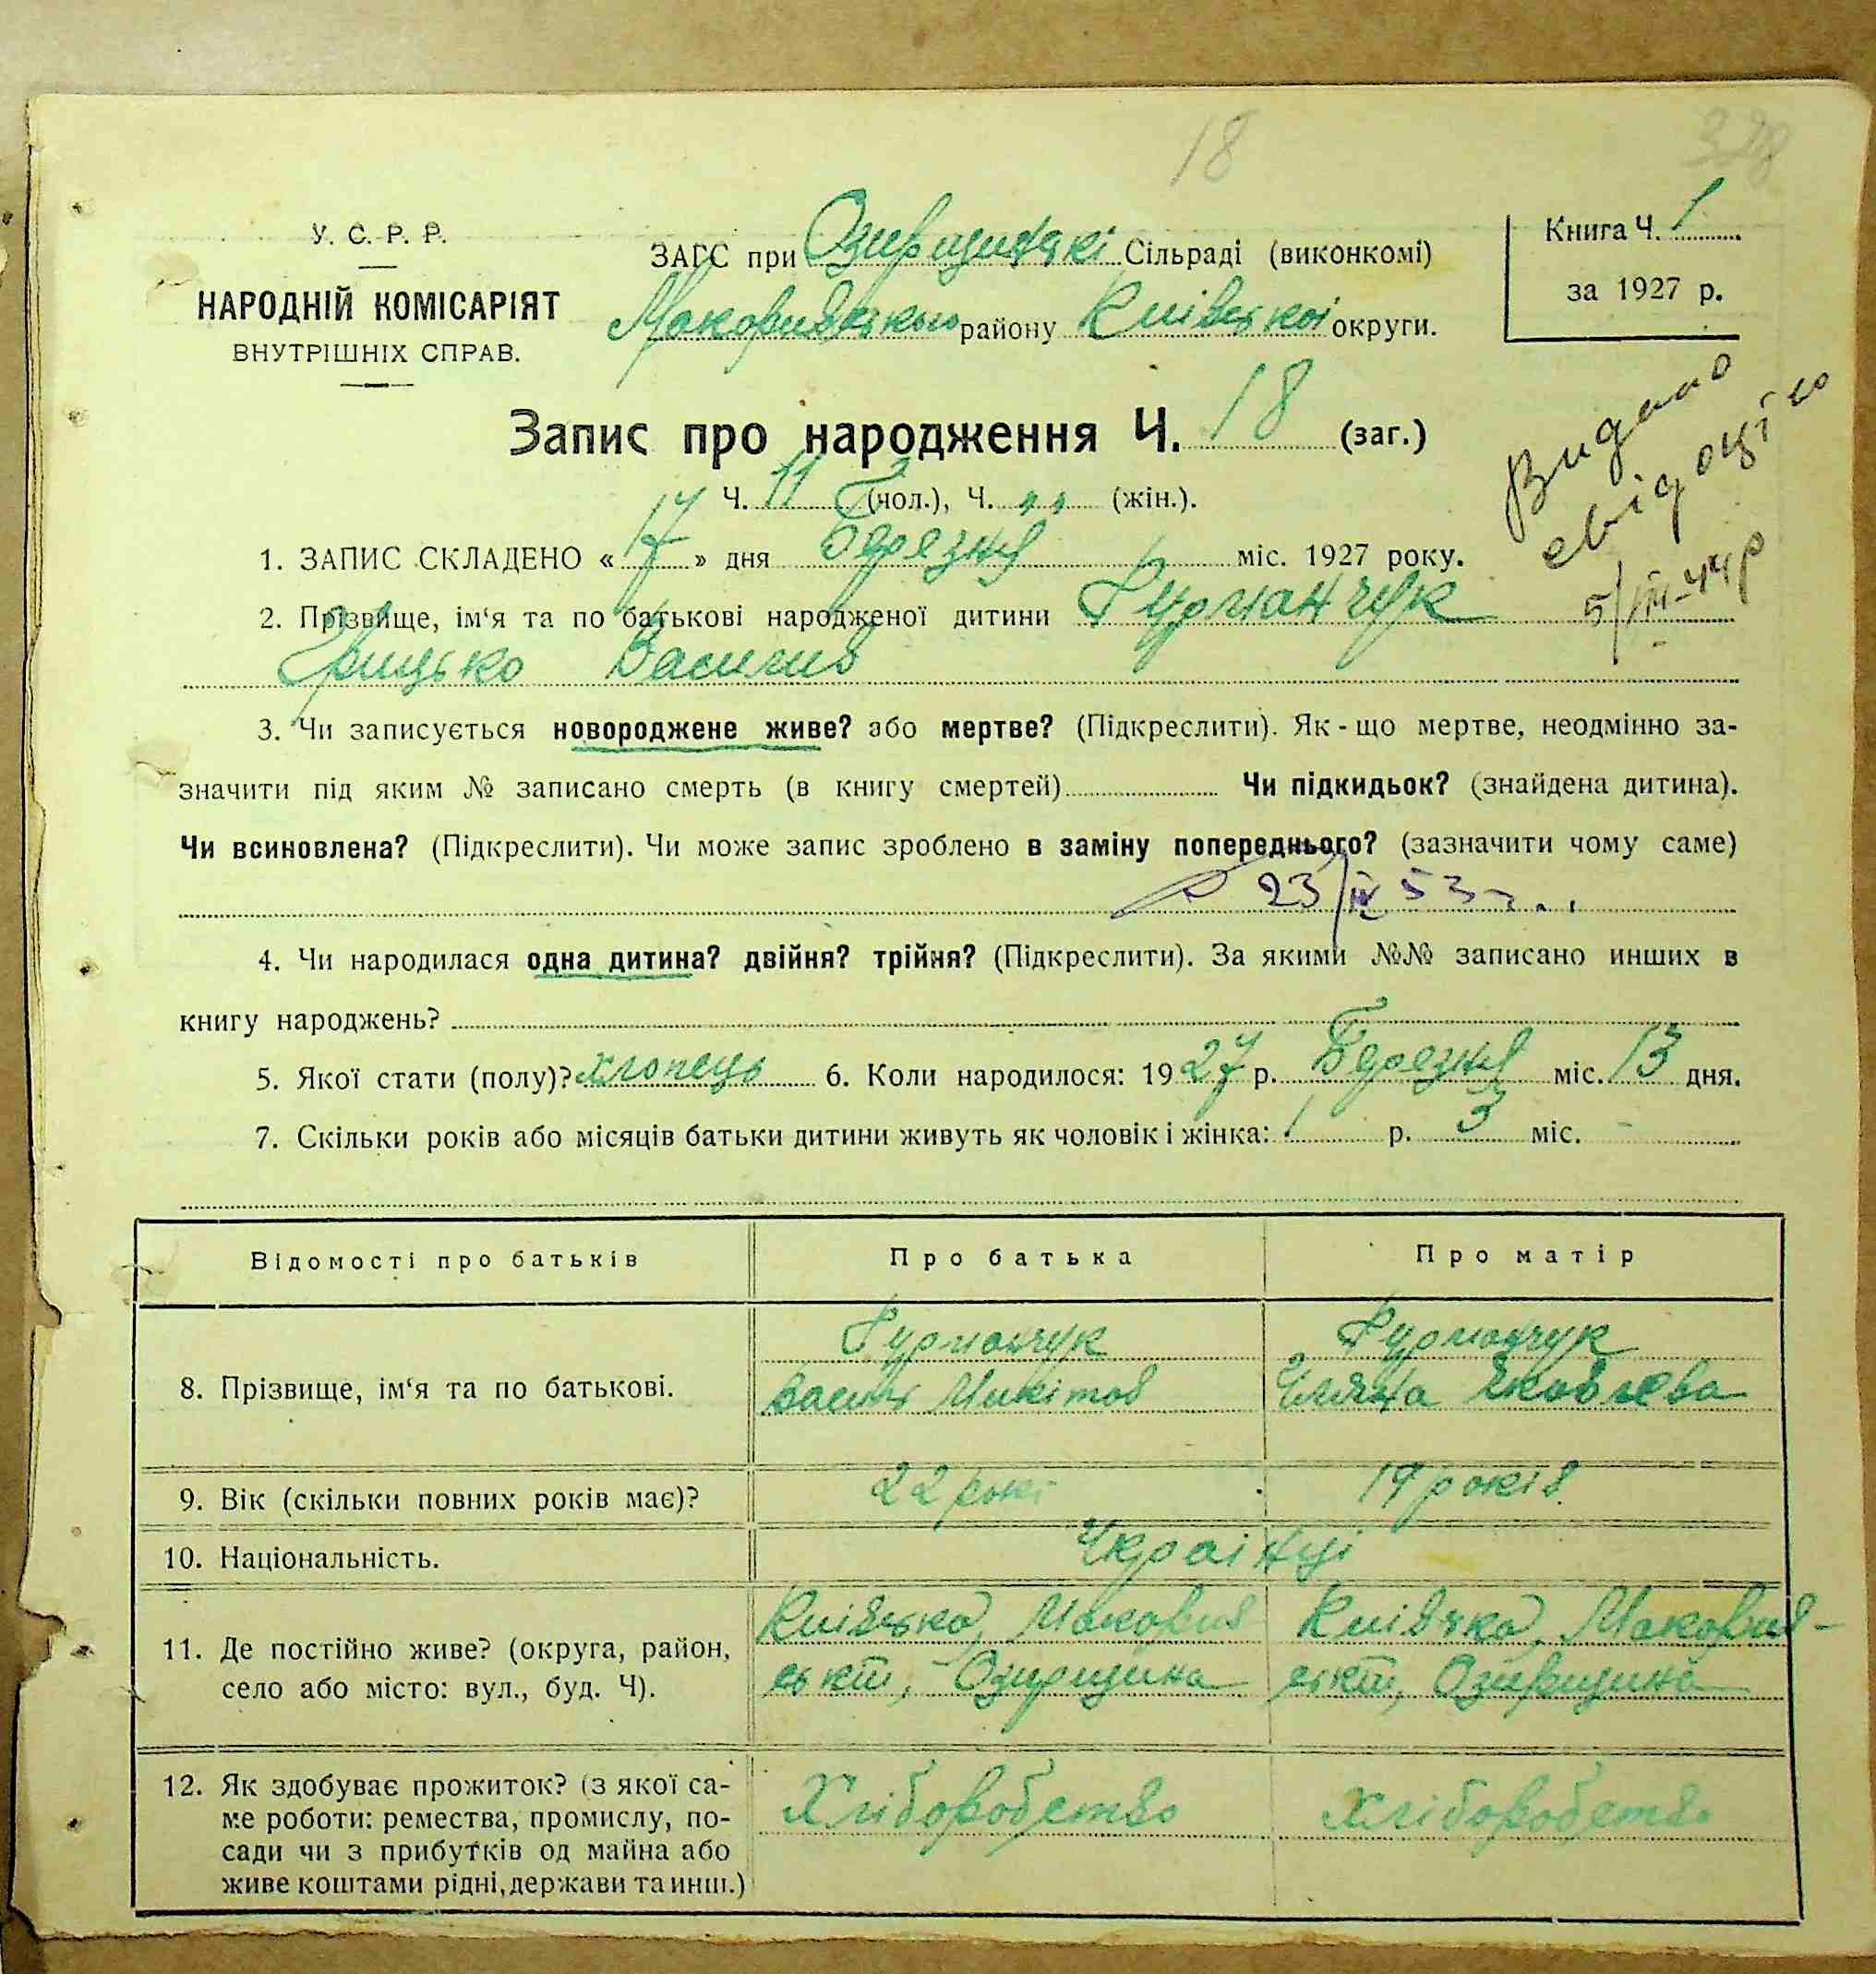 18
У. С. Р. Р.
НАРОДНІЙ КОМІСАРІЯТ
ВНУТРІШНІХ СПРАВ.
ЗАГС при Озирщинскі Сільраді (виконкомі)
Макорівського району Київської округи.
Книга Ч. 1
за 1927 р.
Запис про народження Ч. 18 (заг.)
Ч. 11 (чол.), Ч. „ (жін.).
Видано
свідоцтво
1. ЗАПИС СКЛАДЕНО « 17 » дня Березня міс. 1927 року.
2. Прізвище, ім‘я та по батькові народженої дитини Гурманчук
Грицько Василив
3. Чи записується новороджене живе? або мертве? (Підкреслити). Як-що мертве, неодмінно за-
значити під яким № записано смерть (в книгу смертей) Чи підкидьок? (знайдена дитина).
Чи всиновлена? (Підкреслити). Чи може запис зроблено в заміну попереднього? (зазначити чому саме)
23/IV 53 г.
4. Чи народилася одна дитина? двійня? трійня? (Підкреслити). За якими №№ записано инших в
книгу народжень?
5. Якої стати (полу)? хлопець 6. Коли народилося: 1927 р. Березня міс. 13 дня.
7. Скільки років або місяців батьки дитини живуть як чоловік і жінка: 1 р. 3 міс. -
Відомості про батьків Про батька Про матір
8. Прізвище, ім‘я та по батькові.
Гурманчук
Василь Микітов
Гурманчук
Уляна Яковлєва
9. Вік (скільки повних років має)? 22 рокі 19 років
10. Національність. Украінці
11. Де постійно живе? (округа, район,
село або місто: вул., буд. Ч).
Киівська, Макорив
ськт, Озирщина
Киівська, Макорив-
ськт, Озирщина
12. Як здобуває прожиток? (з якої са-
ме роботи: ремества, промислу, по-
сади чи з прибутків од майна або
живе коштами рідні, держави та инш.)
Хліборобство
Хліборобство